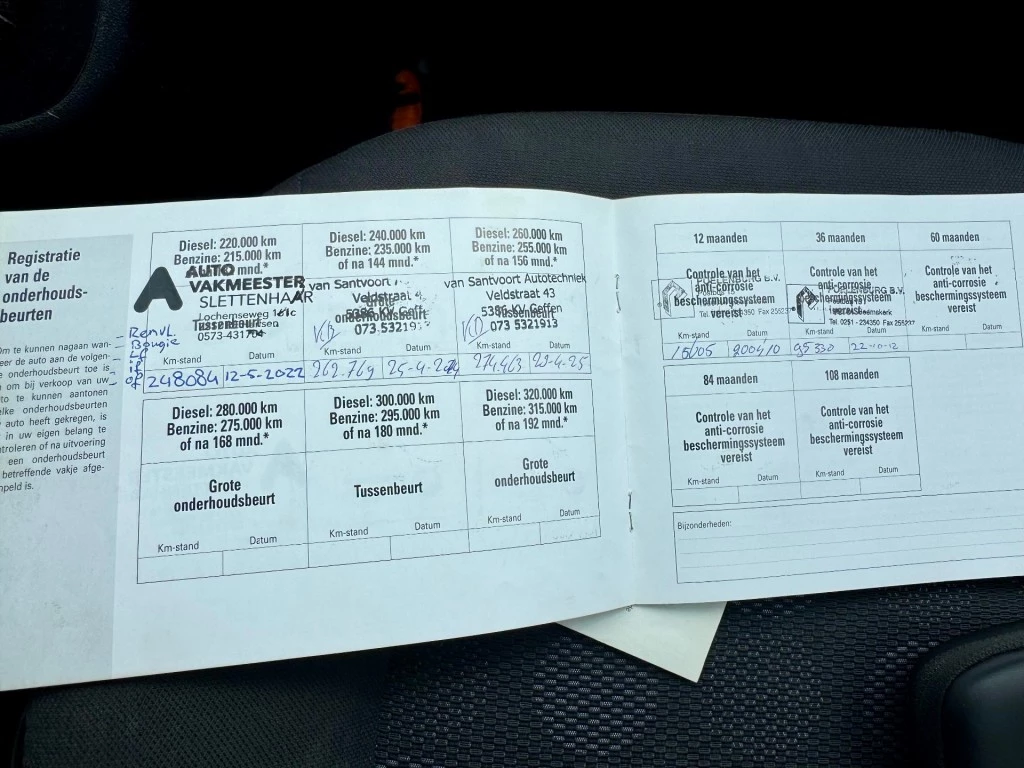 Registratie
van de
onderhouds-
beurten
Om te kunnen nagaan wan-
neer de auto aan de volgen-
de onderhoudsbeurt toe is
en om bij verkoop van uw
auto te kunnen aantonen
welke onderhoudsbeurten
auto heeft gekregen, is
in uw eigen belang te
controleren of na uitvoering
een onderhoudsbeurt
betreffende vakje afge-
stempeld is.
Bougie
Diesel: 220.000 km
Benzine: 215.000 km
mnd.*
AUTO
VAKMEESTER
SLETTENHAAR
Lochemseweg
Tussenbeurt
0573-431704
Km-stand Datum
248084 12-5-2022
Diesel: 240.000 km
Benzine: 235.000 km
of na 144 mnd.*
van Santvoort
Veldstraat
5386 KV Geffen
onderhoudsbeurt
073 5321913
Km-stand Datum
262.769 25-4-2024
Diesel: 260.000 km
Benzine: 255.000 km
of na 156 mnd.*
van Santvoort Autotechniek
Veldstraat 43
5386 KV Geffen
Tussenbeurt
073 5321913
Km-stand Datum
274.463 23-4-25
Diesel: 280.000 km
Benzine: 275.000 km
of na 168 mnd.*
Grote
onderhoudsbeurt
Km-stand Datum
Diesel: 300.000 km
Benzine: 295.000 km
of na 180 mnd.*
Tussenbeurt
Km-stand Datum
Diesel: 320.000 km
Benzine: 315.000 km
of na 192 mnd.*
Grote
onderhoudsbeurt
Km-stand Datum
12 maanden
Controle van het
anti-corrosie
beschermingssysteem
vereist
Km-stand Datum
15605 200410
36 maanden
Controle van het
anti-corrosie
beschermingssysteem
vereist
Tel. 0251 - 234350 Fax 255237
Km-stand Datum
95330 22-10-12
60 maanden
Controle van het
anti-corrosie
beschermingssysteem
vereist
Km-stand Datum
84 maanden
Controle van het
anti-corrosie
beschermingssysteem
vereist
Km-stand Datum
108 maanden
Controle van het
anti-corrosie
beschermingssysteem
vereist
Km-stand Datum
Bijzonderheden: